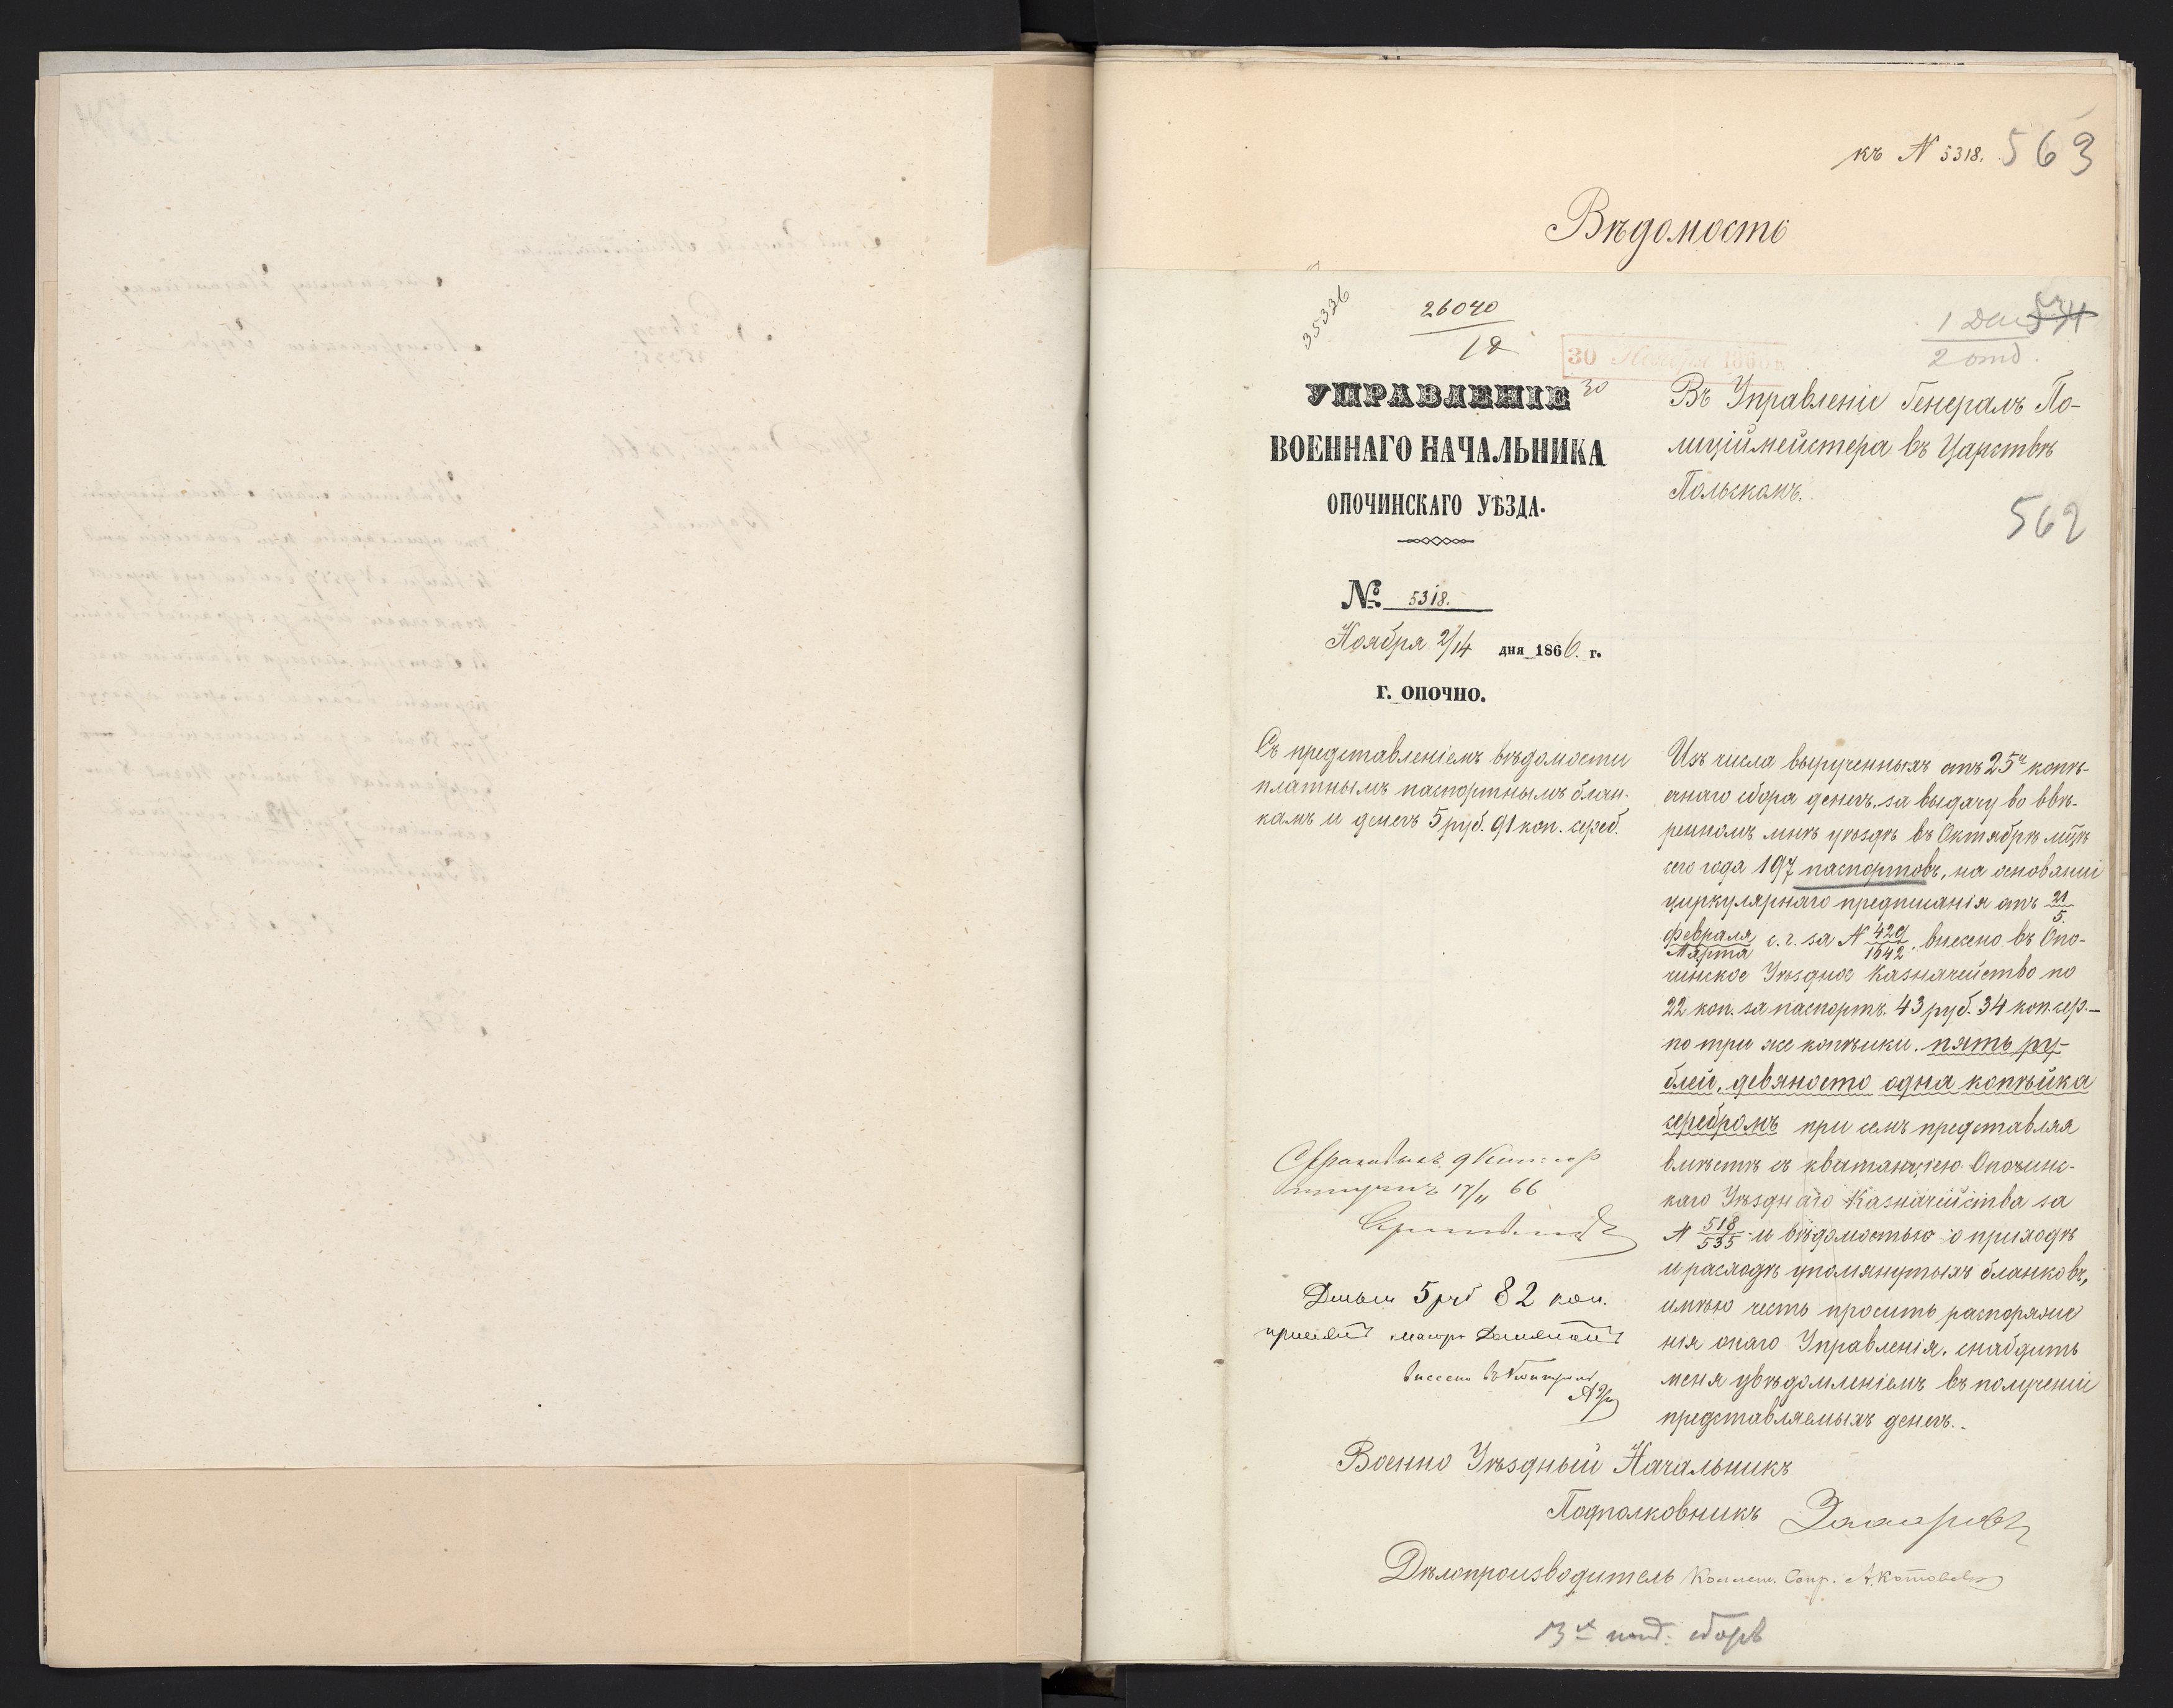 къ N 5318. 563
Вѣдомость
35326
26040
12
30 Ноября 1866 г.
30
2 отд.
УПРАВЛЕНІЕ
ВОЕННАГО НАЧАЛЬНИКА
ОПОЧИНСКАГО УѢЗДА.
№ 5318.
Ноября 2/14 дня 1866. г.
г. ОПОЧНО.
Въ Управленіе Генералъ По-
лиціймейстера въ Царствѣ
Польскомъ.
562
Съ представленіемъ вѣдомости
платнымъ паспортнымъ блан-
камъ и денегъ 5 руб. 91 коп. сереб.
Изъ числа вырученныхъ отъ 25и копѣ-
ечнаго сбора денегъ, за выдачу во ввѣ-
ренномъ мнѣ уѣздѣ въ Октябрѣ мцѣ
сего года 197 паспортовъ, на основаніи
циркулярнаго предписанія отъ 21/5
Февраля/Марта с. г. за N 429/1642, внесено въ Опо-
чинское Уѣздное Казначейство по
22 коп. за паспортъ. 43 руб. 34 коп. сер.—
по три же копѣйки. пять ру-
блей, девяносто одна копѣйка
серебромъ при семъ представляя
вмѣстѣ съ квитанціею Опочинс-
каго Уѣзднаго Казначейства за
N 518/535 и вѣдомостью о приходѣ
и расходѣ упомянутыхъ бланковъ,
имѣю честь просить распоряже
нія онаго Управленія, снабдить
меня увѣдомленіемъ въ полученіи
представляемыхъ денегъ.
17/11 66
Деньги 5 руб 82 коп.
принялъ маіоръ
внесено въ Контроль
Военно Уѣздный Начальникъ
Подполковникъ
Дѣлопроизводитель Коллеж. Секр. А. Котовскій
сборъ